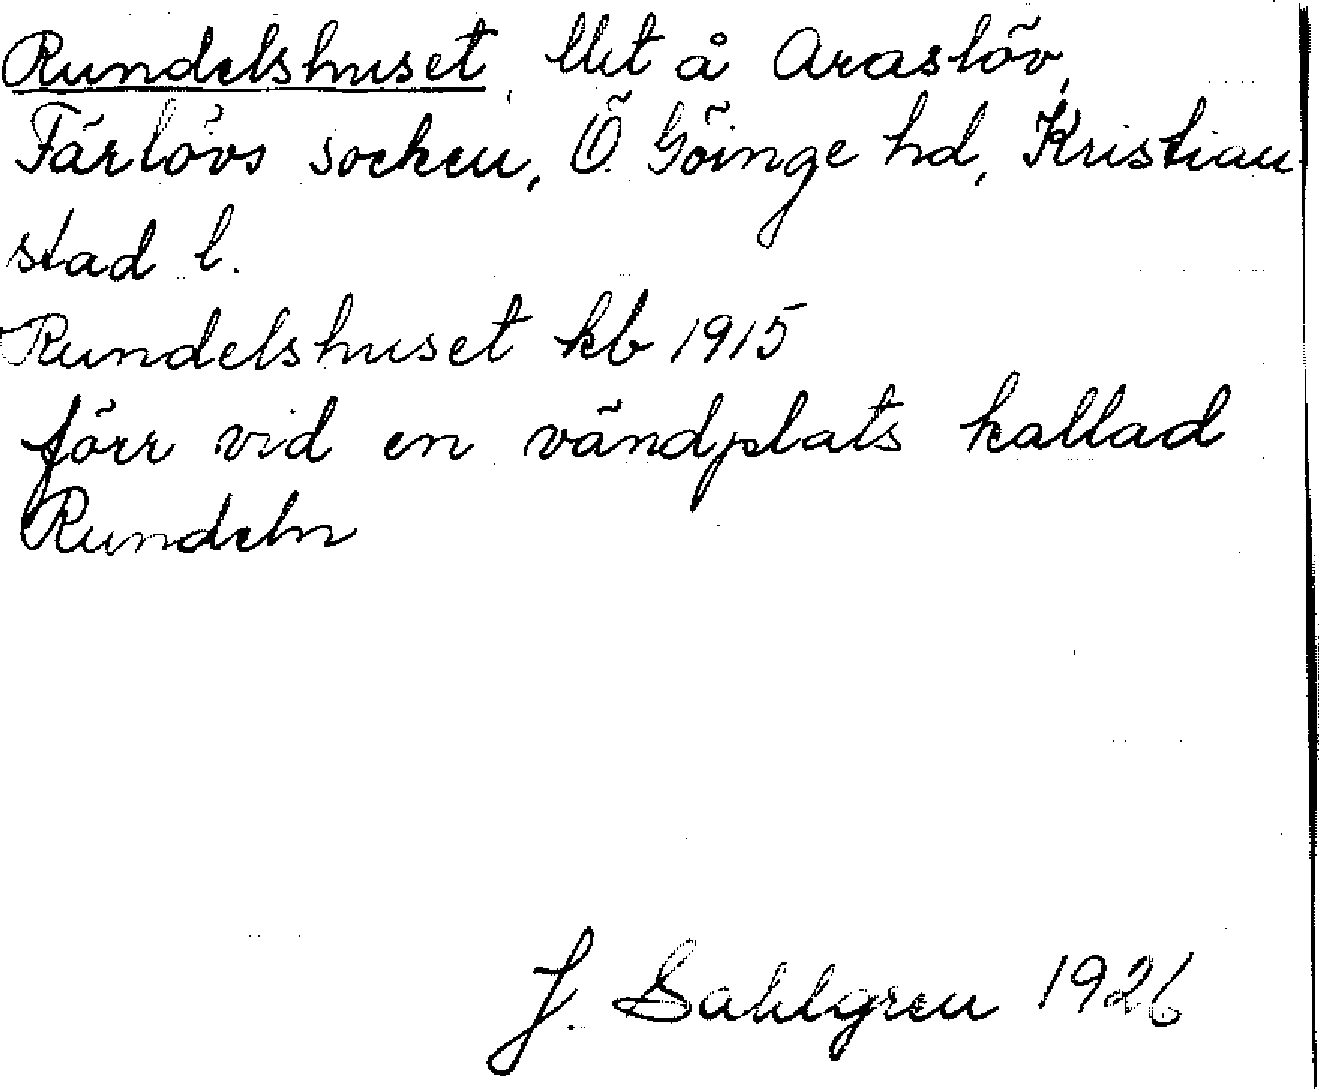 Rundelshuset, llet å Araslöv,
Färlövs socken, Ö. Göinge hd, Kristian
stad l.
Rundelshuset kb 1915
förr vid en vändplats kallad
Rundeln
J. Sahlgren 1926